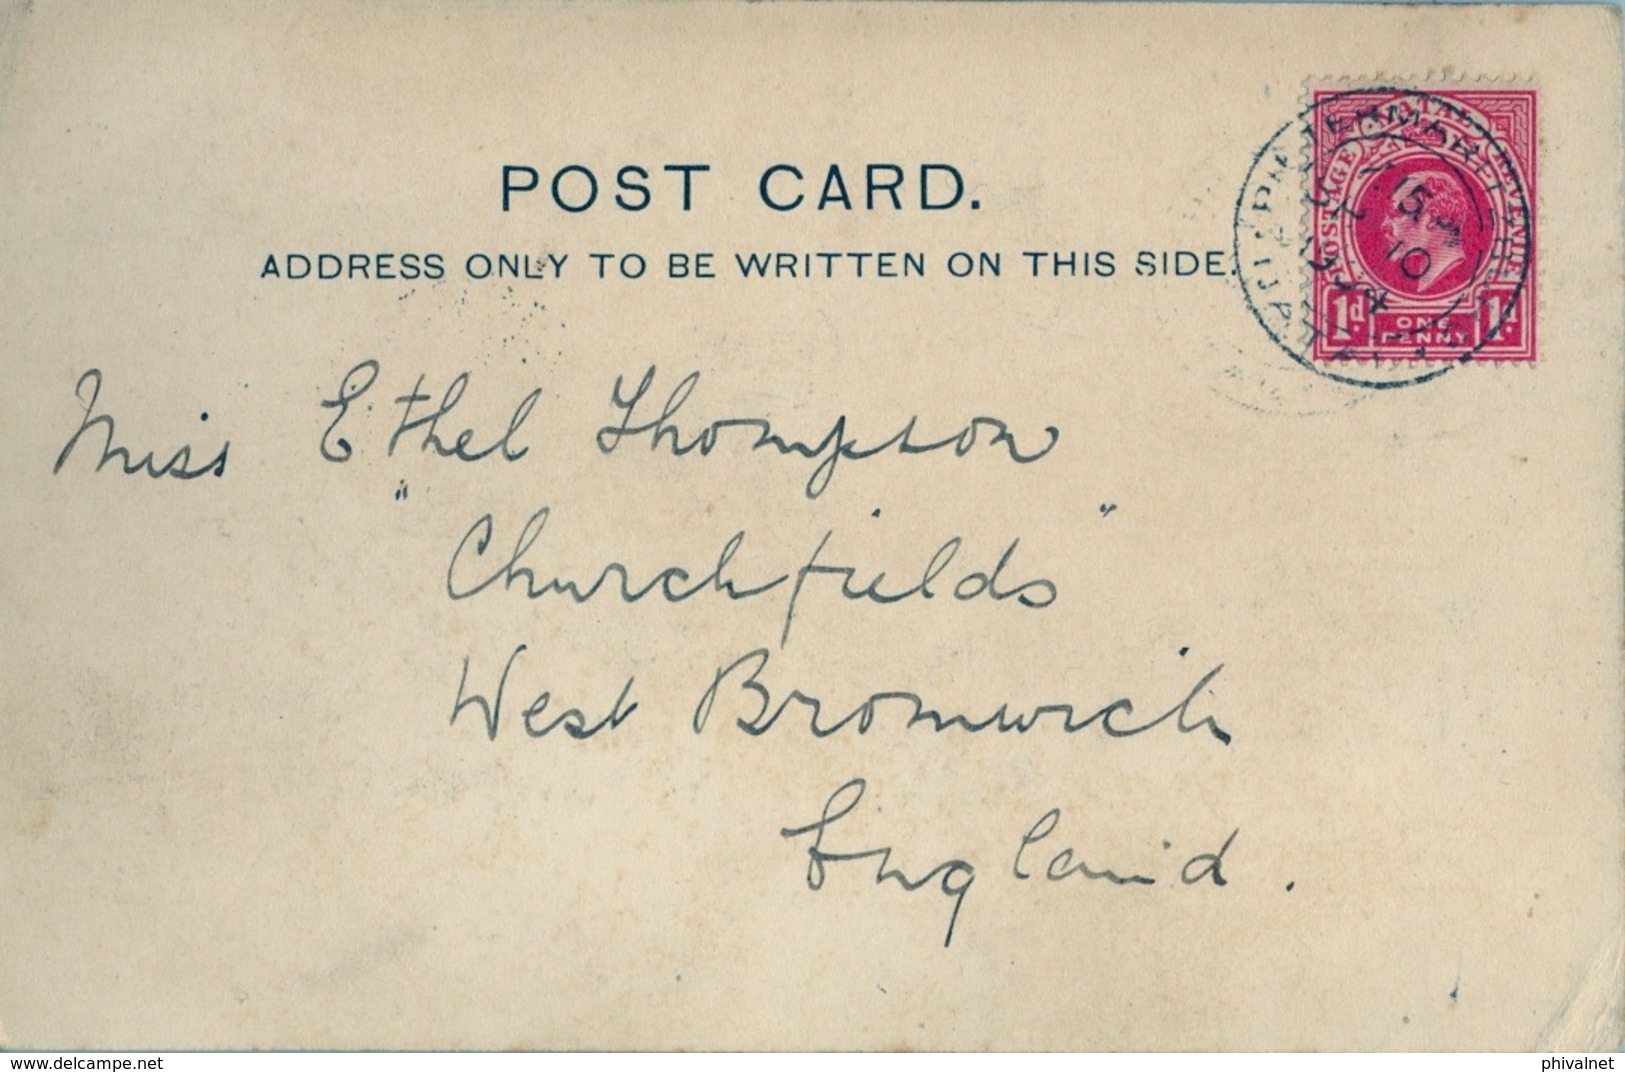 POST CARD.
ADDRESS ONLY TO BE WRITTEN ON THIS SIDE.
NATAL
POSTAGE REVENUE
1d ONE PENNY 1d
Miss Ethel Thompson
"Churchfields"
West Bromwich
England.
www.delcampe.net
phivalnet